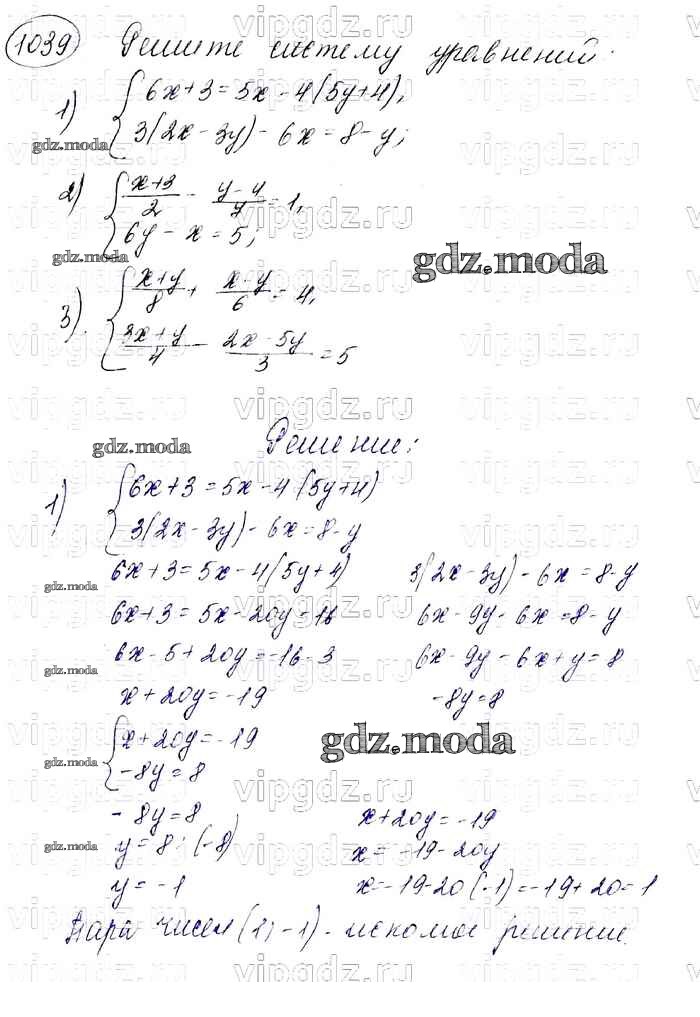 1039 Решите систему уравнений:
1) { 6x+3=5x-4(5y+4),
3(2x-3y)-6x=8-y;
gdz.moda
2) { x+3/2 - y-4/7 = 1,
6y-x=5;
gdz.moda
gdz.moda
3) { x+y/8 + x-y/6 = 4,
3x+y/4 - 2x-5y/3 = 5
gdz.moda
Решение:
1) { 6x+3=5x-4(5y+4)
3(2x-3y)-6x=8-y
6x+3=5x-4(5y+4) 3(2x-3y)-6x=8-y
gdz.moda
6x+3=5x-20y-16 6x-9y-6x=8-y
6x-5+20y=-16-3 6x-9y-6x+y=8
gdz.moda
x+20y=-19 -8y=8
{ x+20y=-19
gdz.moda
-8y=8
gdz.moda
-8y=8 x+20y=-19
y=8:(-8) x=-19-20y
gdz.moda
y=-1 x=-19-20(-1)=-19+20=1
Пара чисел (1;-1)-искомое решение.
vipgdz.ru